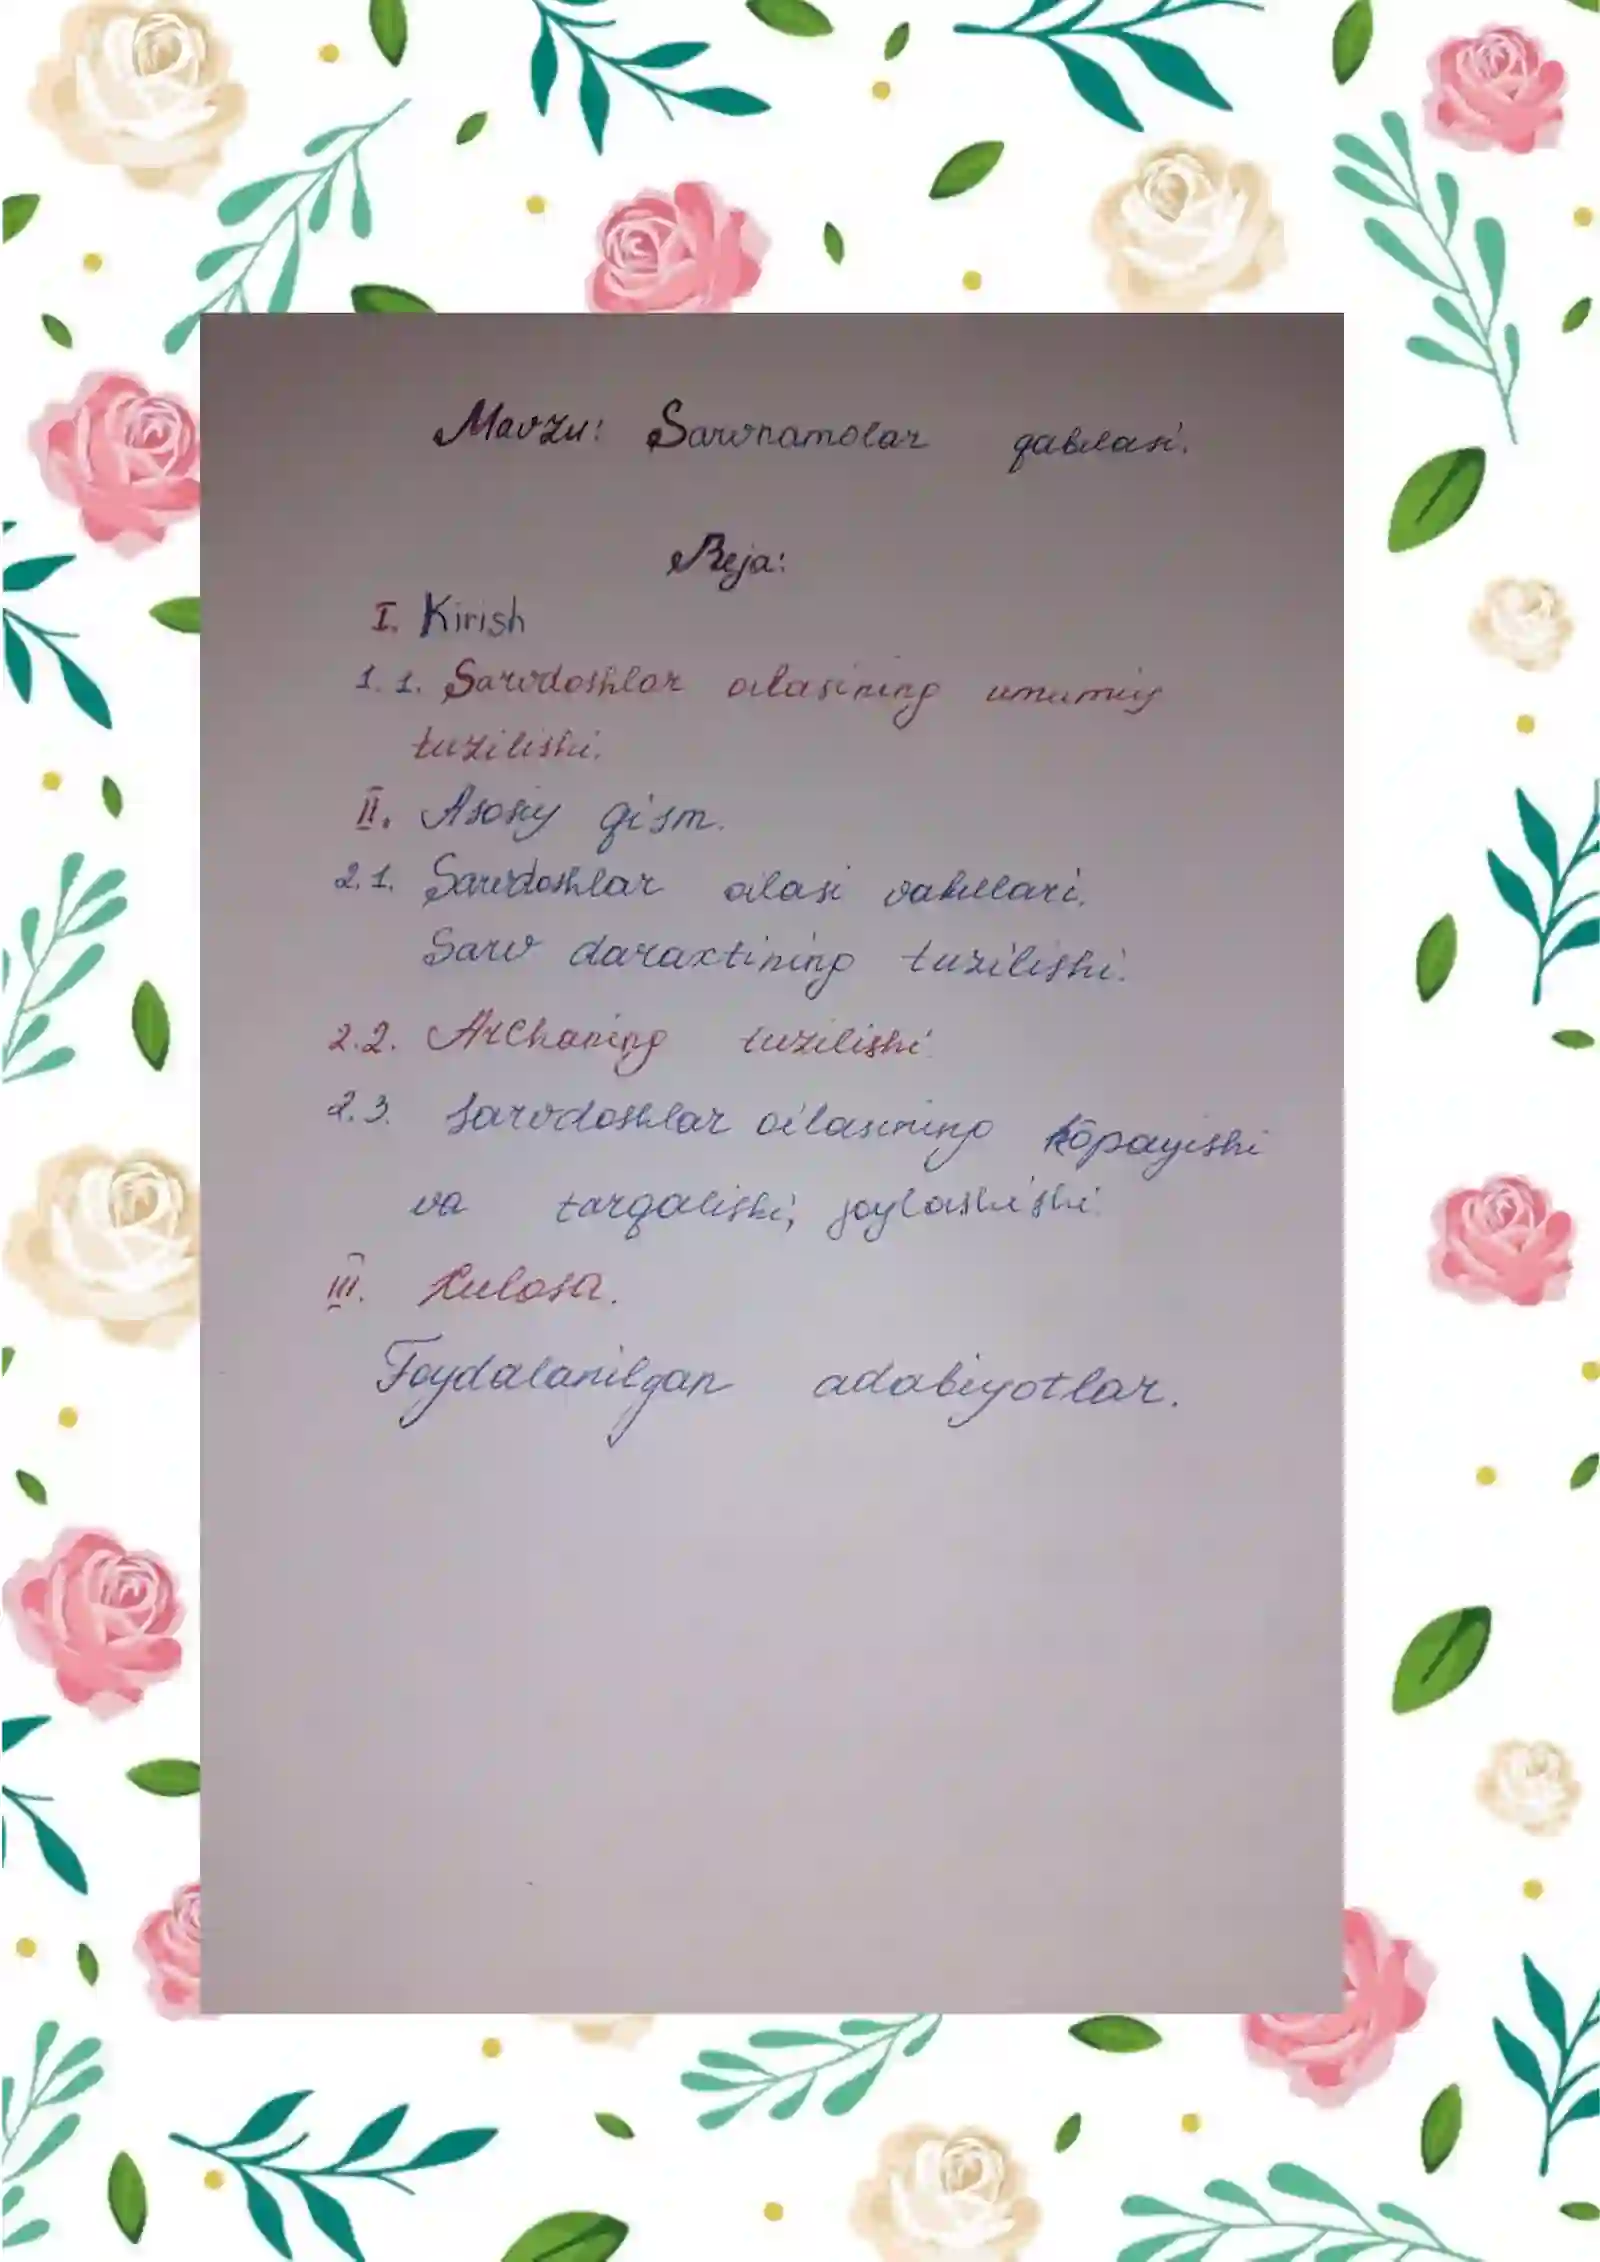 Mavzu: Sarvnamolar qabilasi.
Reja:
I. Kirish
1.1. Sarvdoshlar oilasining umumiy
tuzilishi.
II. Asosiy qism.
2.1. Sarvdoshlar oilasi vakillari.
Sarv daraxtining tuzilishi.
2.2. Archaning tuzilishi
2.3. Sarvdoshlar oilasining kōpayishi
va tarqalishi, joylashishi.
III. Xulosa.
Foydalanilgan adabiyotlar.